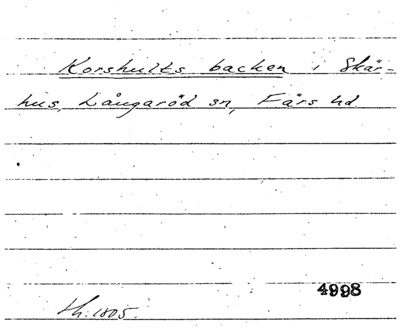 Korshults backen i Skär-
hus, Långaröd sn, Färs hd.
4998
th: 1805.